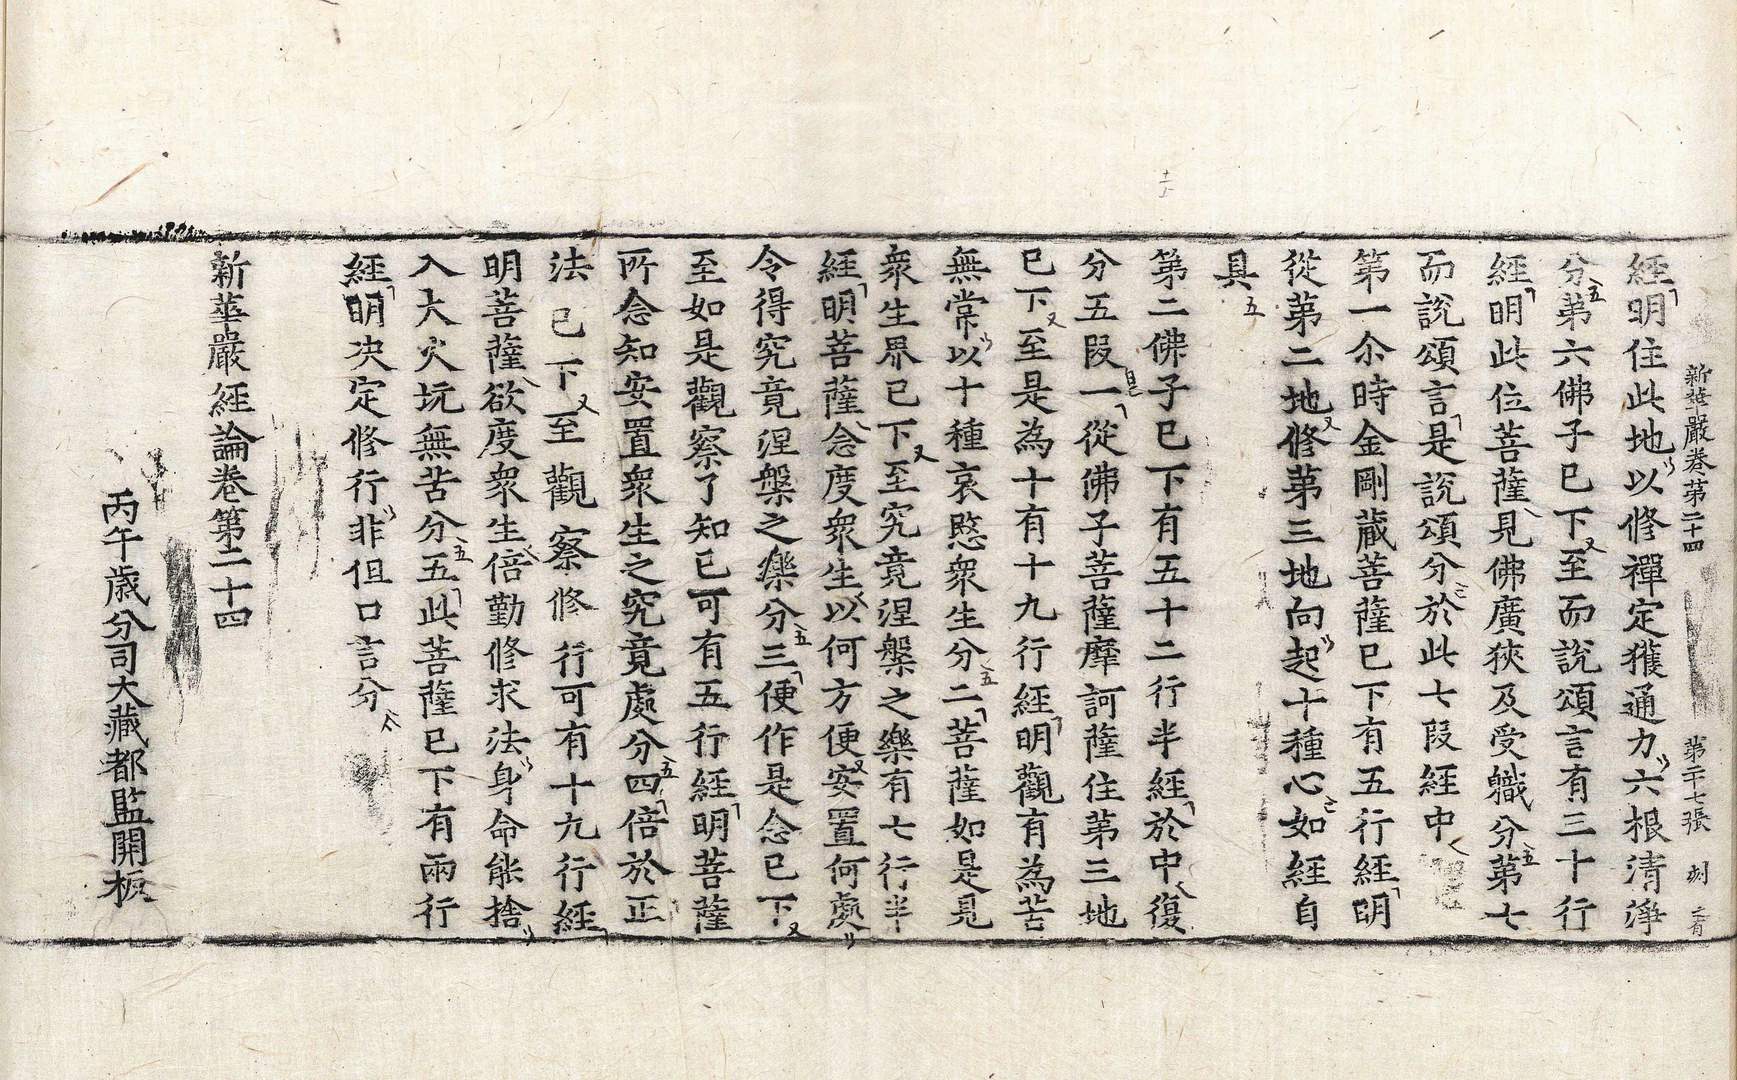 新華嚴卷第二十四 第二十七張 刻
經明住此地以修禪定獲通力六根清淨
分第六佛子已下至而說頌言有三十行
經明此位菩薩見佛廣狹及受職分第七
而說頌言是說頌分於此七段經中
第一尒時金剛藏菩薩已下有五行經明
從第二地修第三地向起十種心如經自
具
第二佛子已下有五十二行半經於中復
分五段一從佛子菩薩摩訶薩住第三地
已下至是為十有十九行經明觀有為苦
無常以十種哀愍衆生分二菩薩如是見
衆生界已下至究竟涅槃之樂有七行半
經明菩薩念度衆生以何方便安置何處
令得究竟涅槃之樂分三便作是念已下
至如是觀察了知已可有五行經明菩薩
所念知安置衆生之究竟處分四倍於正
法已下至觀察修行可有十九行經
明菩薩欲度衆生倍勤修求法身命能捨
入大火坑無苦分五此菩薩已下有兩行
經明決定修行非但口言分
新華嚴經論卷第二十四
丙午歲分司大藏都監開板